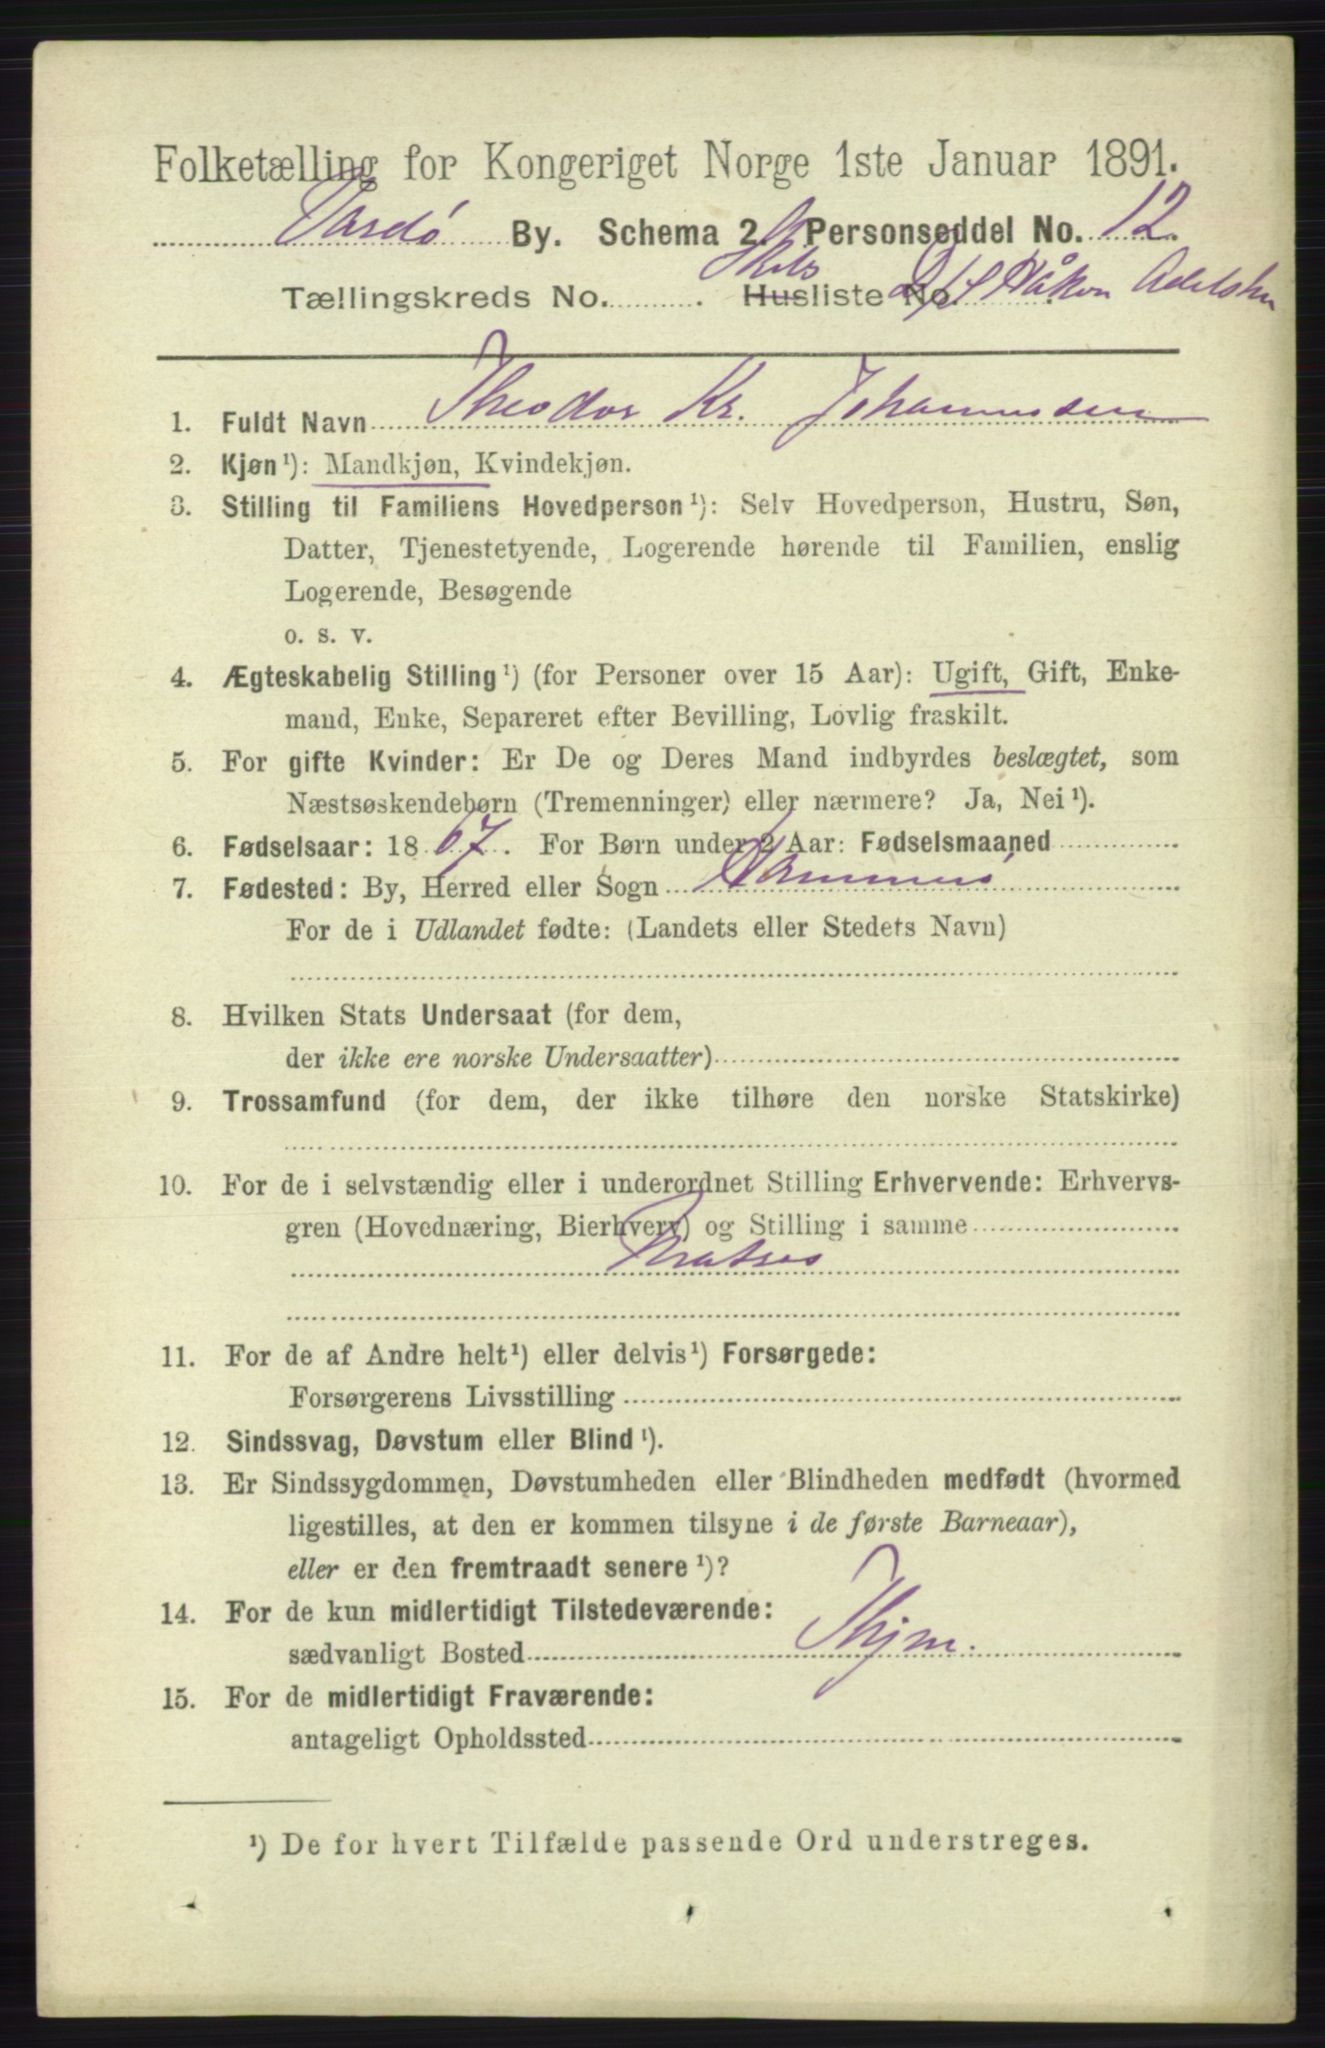 Folketælling for Kongeriget Norge 1ste Januar 1891.
Vardö By. Schema 2. Personseddel No. 12.
Tællingskreds No. . Husliste No. Skibs D/S Håkon Adelsten
1. Fuldt Navn Theodor Kr. Johannessen
2. Kjøn¹): Mandkjøn, Kvindekjøn.
3. Stilling til Familiens Hovedperson¹): Selv Hovedperson, Hustru, Søn,
Datter, Tjenestetyende, Logerende hørende til Familien, enslig
Logerende, Besøgende
o. s. v.
4. Ægteskabelig Stilling¹) (for Personer over 15 Aar): Ugift, Gift, Enke-
mand, Enke, Separeret efter Bevilling, Lovlig fraskilt.
5. For gifte Kvinder: Er De og Deres Mand indbyrdes beslægtet, som
Næstsøskendebørn (Tremenninger) eller nærmere? Ja, Nei¹).
6. Fødselsaar: 1867. For Børn under 2 Aar: Fødselsmaaned
7. Fødested: By, Herred eller Sogn
For de i Udlandet fødte: (Landets eller Stedets Navn)
8. Hvilken Stats Undersaat (for dem,
der ikke ere norske Undersaatter)
9. Trossamfund (for dem, der ikke tilhøre den norske Statskirke)
10. For de i selvstændig eller i underordnet Stilling Erhvervende: Erhvervs-
gren (Hovednæring, Bierhverv) og Stilling i samme
Matros
11. For de af Andre helt¹) eller delvis¹) Forsørgede:
Forsørgerens Livsstilling
12. Sindssvag, Døvstum eller Blind¹).
13. Er Sindssygdommen, Døvstumheden eller Blindheden medfødt (hvormed
ligestilles, at den er kommen tilsyne i de første Barneaar),
eller er den fremtraadt senere¹)?
14. For de kun midlertidigt Tilstedeværende:
sædvanligt Bosted Thjm.
15. For de midlertidigt Fraværende:
antageligt Opholdssted
¹) De for hvert Tilfælde passende Ord understreges.